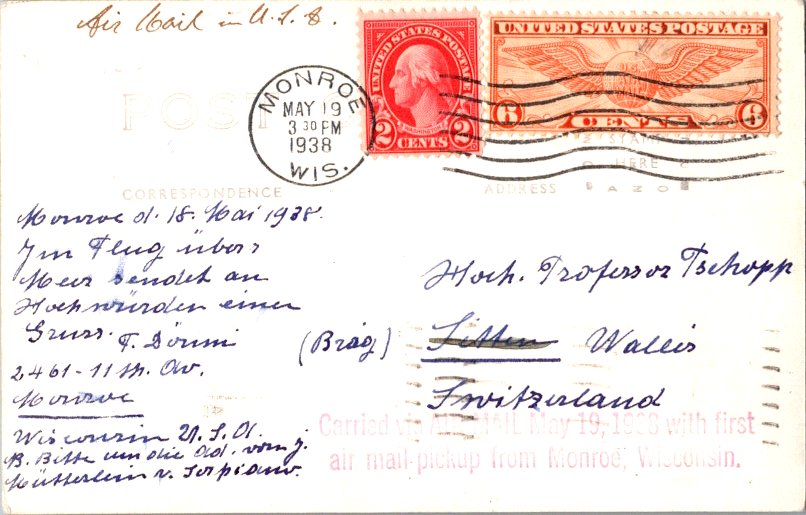 Air Mail in U.S.A.
UNITED STATES POSTAGE
WASHINGTON
2 CENTS 2
UNITED STATES POSTAGE
6 CENTS 6
MONROE
MAY 19
3 30 PM
1938
WIS.
POST
STAMP
HERE
AZO
CORRESPONDENCE
ADDRESS
Monroe d. 18. Mai 1938.
Im Flug übers
Meer sendet an
Hochwürden einen
Gruss. F. Dörni
2461-11 th. Av.
Monroe
Wisconsin U.S.A.
B. Bitte um die Ad. vom j.
Mütterlein v.
Hoch. Professor Tschopp
(Bräg) Sitten Wallis
Switzerland
Carried via AIR MAIL May 19, 1938 with first
air mail-pickup from Monroe, Wisconsin.